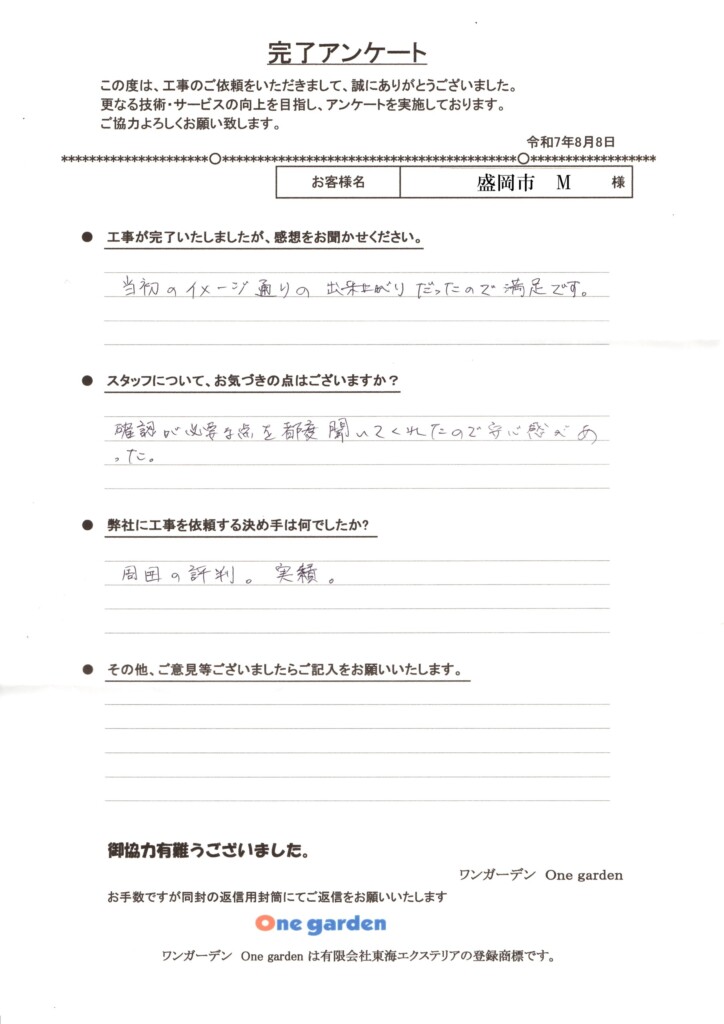 完了アンケート
この度は、工事のご依頼をいただきまして、誠にありがとうございました。
更なる技術・サービスの向上を目指し、アンケートを実施しております。
ご協力よろしくお願い致します。
令和7年8月8日
**********************○******************************************○*******************
お客様名 盛岡市 M 様
● 工事が完了いたしましたが、感想をお聞かせください。
当初のイメージ通りの出来上がりだったので満足です。
● スタッフについて、お気づきの点はございますか？
確認が必要な点を都度聞いてくれたので安心感があ
った。
● 弊社に工事を依頼する決め手は何でしたか?
周囲の評判。実績。
● その他、ご意見等ございましたらご記入をお願いいたします。
御協力有難うございました。
ワンガーデン One garden
お手数ですが同封の返信用封筒にてご返信をお願いいたします
One garden
ワンガーデン One garden は有限会社東海エクステリアの登録商標です。